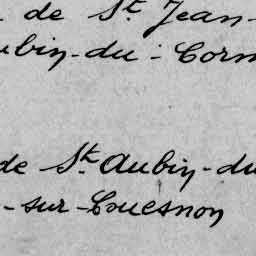 de St Jean-
ubin-du-Corm
de St Aubin-du
-sur-Couesnon